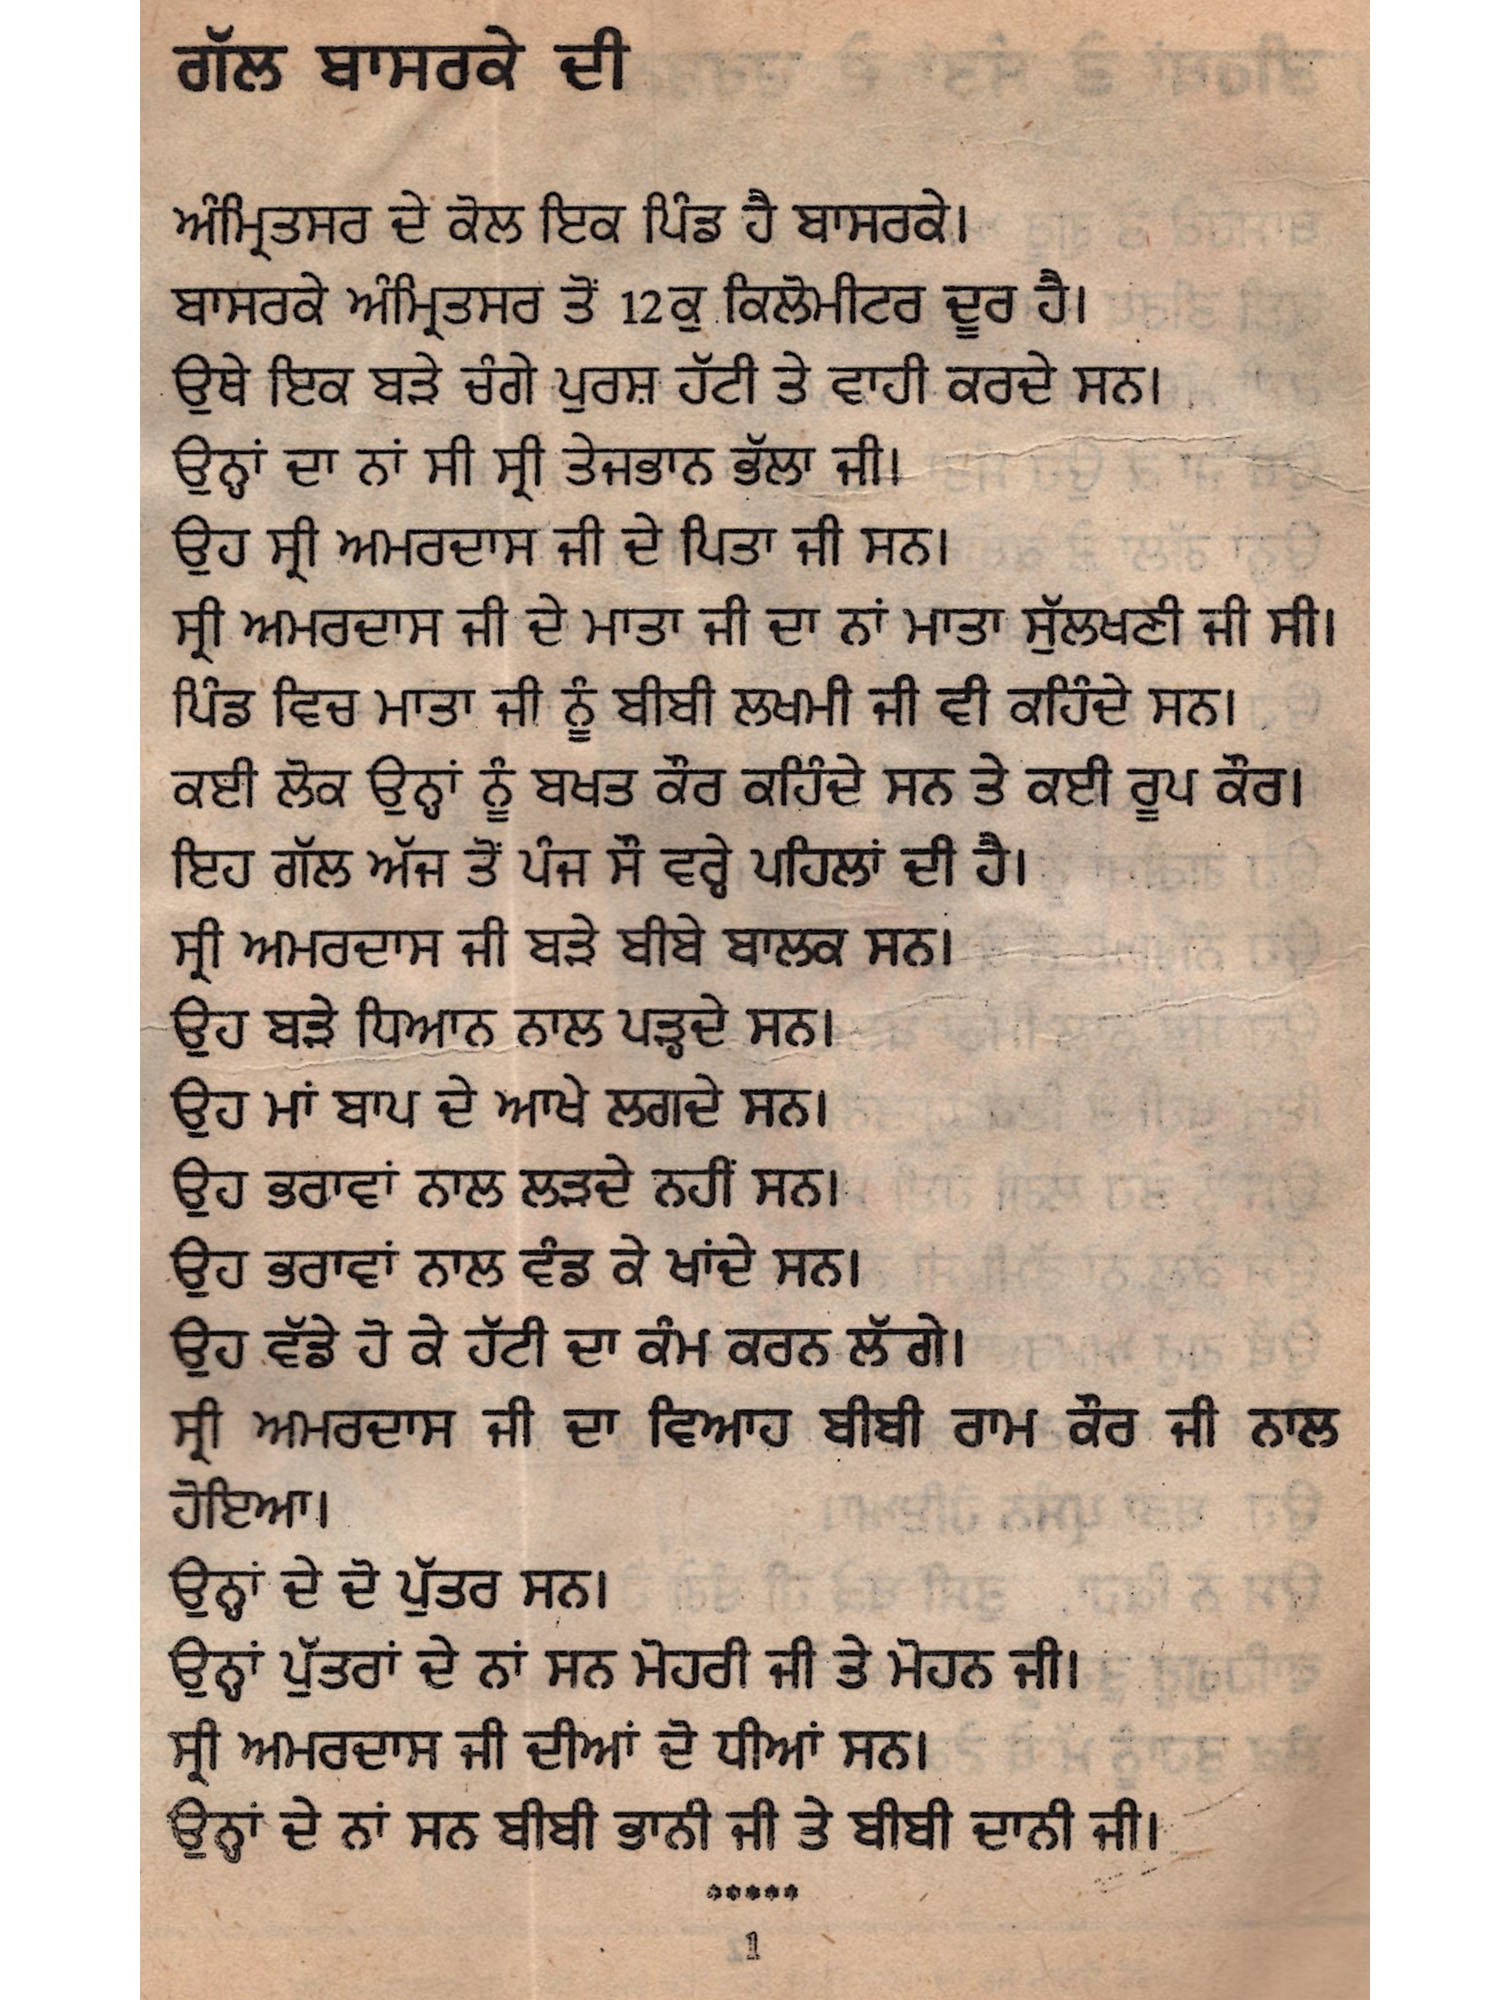 ਗੱਲ ਬਾਸਰਕੇ ਦੀ
ਅੰਮ੍ਰਿਤਸਰ ਦੇ ਕੋਲ ਇਕ ਪਿੰਡ ਹੈ ਬਾਸਰਕੇ।
ਬਾਸਰਕੇ ਅੰਮ੍ਰਿਤਸਰ ਤੋਂ 12ਕੁ ਕਿਲੋਮੀਟਰ ਦੂਰ ਹੈ।
ਉਥੇ ਇਕ ਬੜੇ ਚੰਗੇ ਪੁਰਸ਼ ਹੱਟੀ ਤੇ ਵਾਹੀ ਕਰਦੇ ਸਨ।
ਉਨ੍ਹਾਂ ਦਾ ਨਾਂ ਸੀ ਸ੍ਰੀ ਤੇਜਭਾਨ ਭੱਲਾ ਜੀ।
ਉਹ ਸ੍ਰੀ ਅਮਰਦਾਸ ਜੀ ਦੇ ਪਿਤਾ ਜੀ ਸਨ।
ਸ੍ਰੀ ਅਮਰਦਾਸ ਜੀ ਦੇ ਮਾਤਾ ਜੀ ਦਾ ਨਾਂ ਮਾਤਾ ਸੁੱਲਖਣੀ ਜੀ ਸੀ।
ਪਿੰਡ ਵਿਚ ਮਾਤਾ ਜੀ ਨੂੰ ਬੀਬੀ ਲਖਮੀ ਜੀ ਵੀ ਕਹਿੰਦੇ ਸਨ।
ਕਈ ਲੋਕ ਉਨ੍ਹਾਂ ਨੂੰ ਬਖਤ ਕੌਰ ਕਹਿੰਦੇ ਸਨ ਤੇ ਕਈ ਰੂਪ ਕੌਰ।
ਇਹ ਗੱਲ ਅੱਜ ਤੋਂ ਪੰਜ ਸੌ ਵਰ੍ਹੇ ਪਹਿਲਾਂ ਦੀ ਹੈ।
ਸ੍ਰੀ ਅਮਰਦਾਸ ਜੀ ਬੜੇ ਬੀਬੇ ਬਾਲਕ ਸਨ।
ਉਹ ਬੜੇ ਧਿਆਨ ਨਾਲ ਪੜ੍ਹਦੇ ਸਨ।
ਉਹ ਮਾਂ ਬਾਪ ਦੇ ਆਖੇ ਲਗਦੇ ਸਨ।
ਉਹ ਭਰਾਵਾਂ ਨਾਲ ਲੜਦੇ ਨਹੀਂ ਸਨ।
ਉਹ ਭਰਾਵਾਂ ਨਾਲ ਵੰਡ ਕੇ ਖਾਂਦੇ ਸਨ।
ਉਹ ਵੱਡੇ ਹੋ ਕੇ ਹੱਟੀ ਦਾ ਕੰਮ ਕਰਨ ਲੱਗੇ।
ਸ੍ਰੀ ਅਮਰਦਾਸ ਜੀ ਦਾ ਵਿਆਹ ਬੀਬੀ ਰਾਮ ਕੌਰ ਜੀ ਨਾਲ
ਹੋਇਆ।
ਉਨ੍ਹਾਂ ਦੇ ਦੋ ਪੁੱਤਰ ਸਨ।
ਉਨ੍ਹਾਂ ਪੁੱਤਰਾਂ ਦੇ ਨਾਂ ਸਨ ਮੋਹਰੀ ਜੀ ਤੇ ਮੋਹਨ ਜੀ।
ਸ੍ਰੀ ਅਮਰਦਾਸ ਜੀ ਦੀਆਂ ਦੋ ਧੀਆਂ ਸਨ।
ਉਨ੍ਹਾਂ ਦੇ ਨਾਂ ਸਨ ਬੀਬੀ ਭਾਨੀ ਜੀ ਤੇ ਬੀਬੀ ਦਾਨੀ ਜੀ।
*****
1